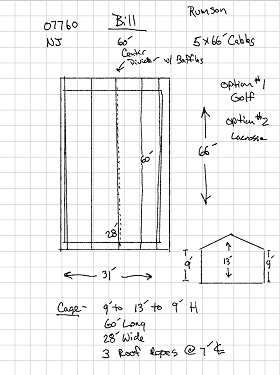 Bill
Rumson
07760
NJ
60'
Center
Divider w/ Baffles
5 x 66' Cables
Option #1
Golf
Option #2
Lacrosse
66'
60'
28'
31'
9'
13'
9'
Cage - 9' to 13' to 9' H
60' Long
28' Wide
3 Roof Ropes @ 7' ℄